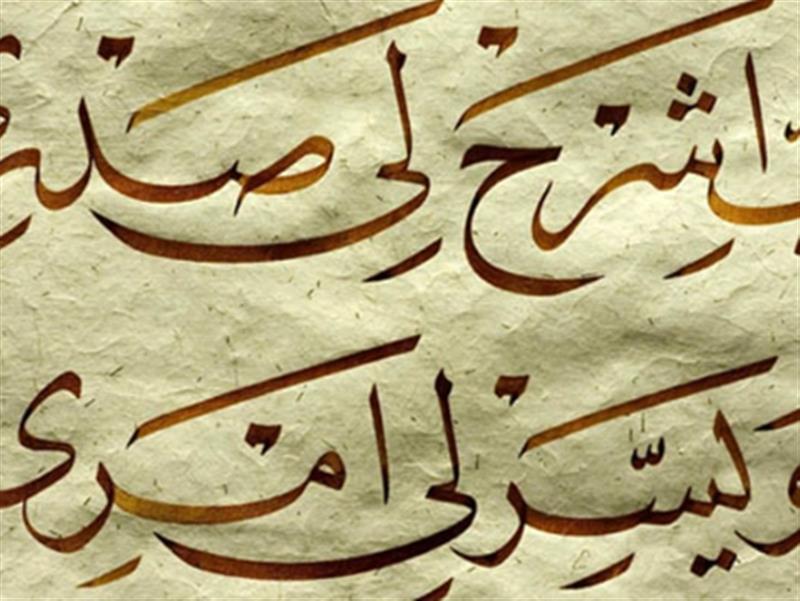 اشْرَحْ لِى صَدْرِى
وَيَسِّرْ لِى اَمْرِى